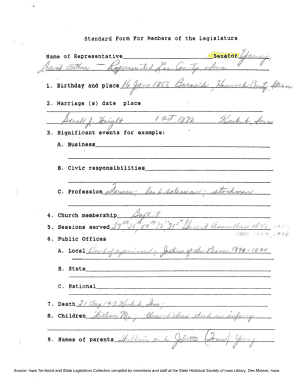 Standard Form For Members of the Legislature
Name of Representative Senator Young
Represented Lee County, Iowa
1. Birthday and place 16 Jan 1852 Burnside, Hancock County, Illinois
2. Marriage (s) date place
Sarah J. 1 Oct 1872 Keokuk, Iowa
3. Significant events for example:
A. Business
B. Civic responsibilities
C. Profession Farmer; stockman
4. Church membership Baptist
5. Sessions served
6. Public Offices
A. Local Justice of the Peace 1890-1894
B. State
C. National
7. Death 21 Keokuk, Iowa
8. Children William M.; three children died in infancy
9. Names of parents and Juliette Young
Source: Iowa Territorial and State Legislators Collection compiled by volunteers and staff at the State Historical Society of Iowa Library, Des Moines, Iowa.